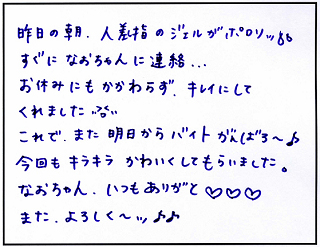 昨日の朝、人差指のジェルがポロッ
すぐになおちゃんに連絡...
お休みにもかかわらず、キレイにして
くれました
これで、また明日からバイトがんばろ〜♪
今回もキラキラかわいくしてもらいました。
なおちゃん、いつもありがと♡♡♡
また、よろしく〜ッ♪♪